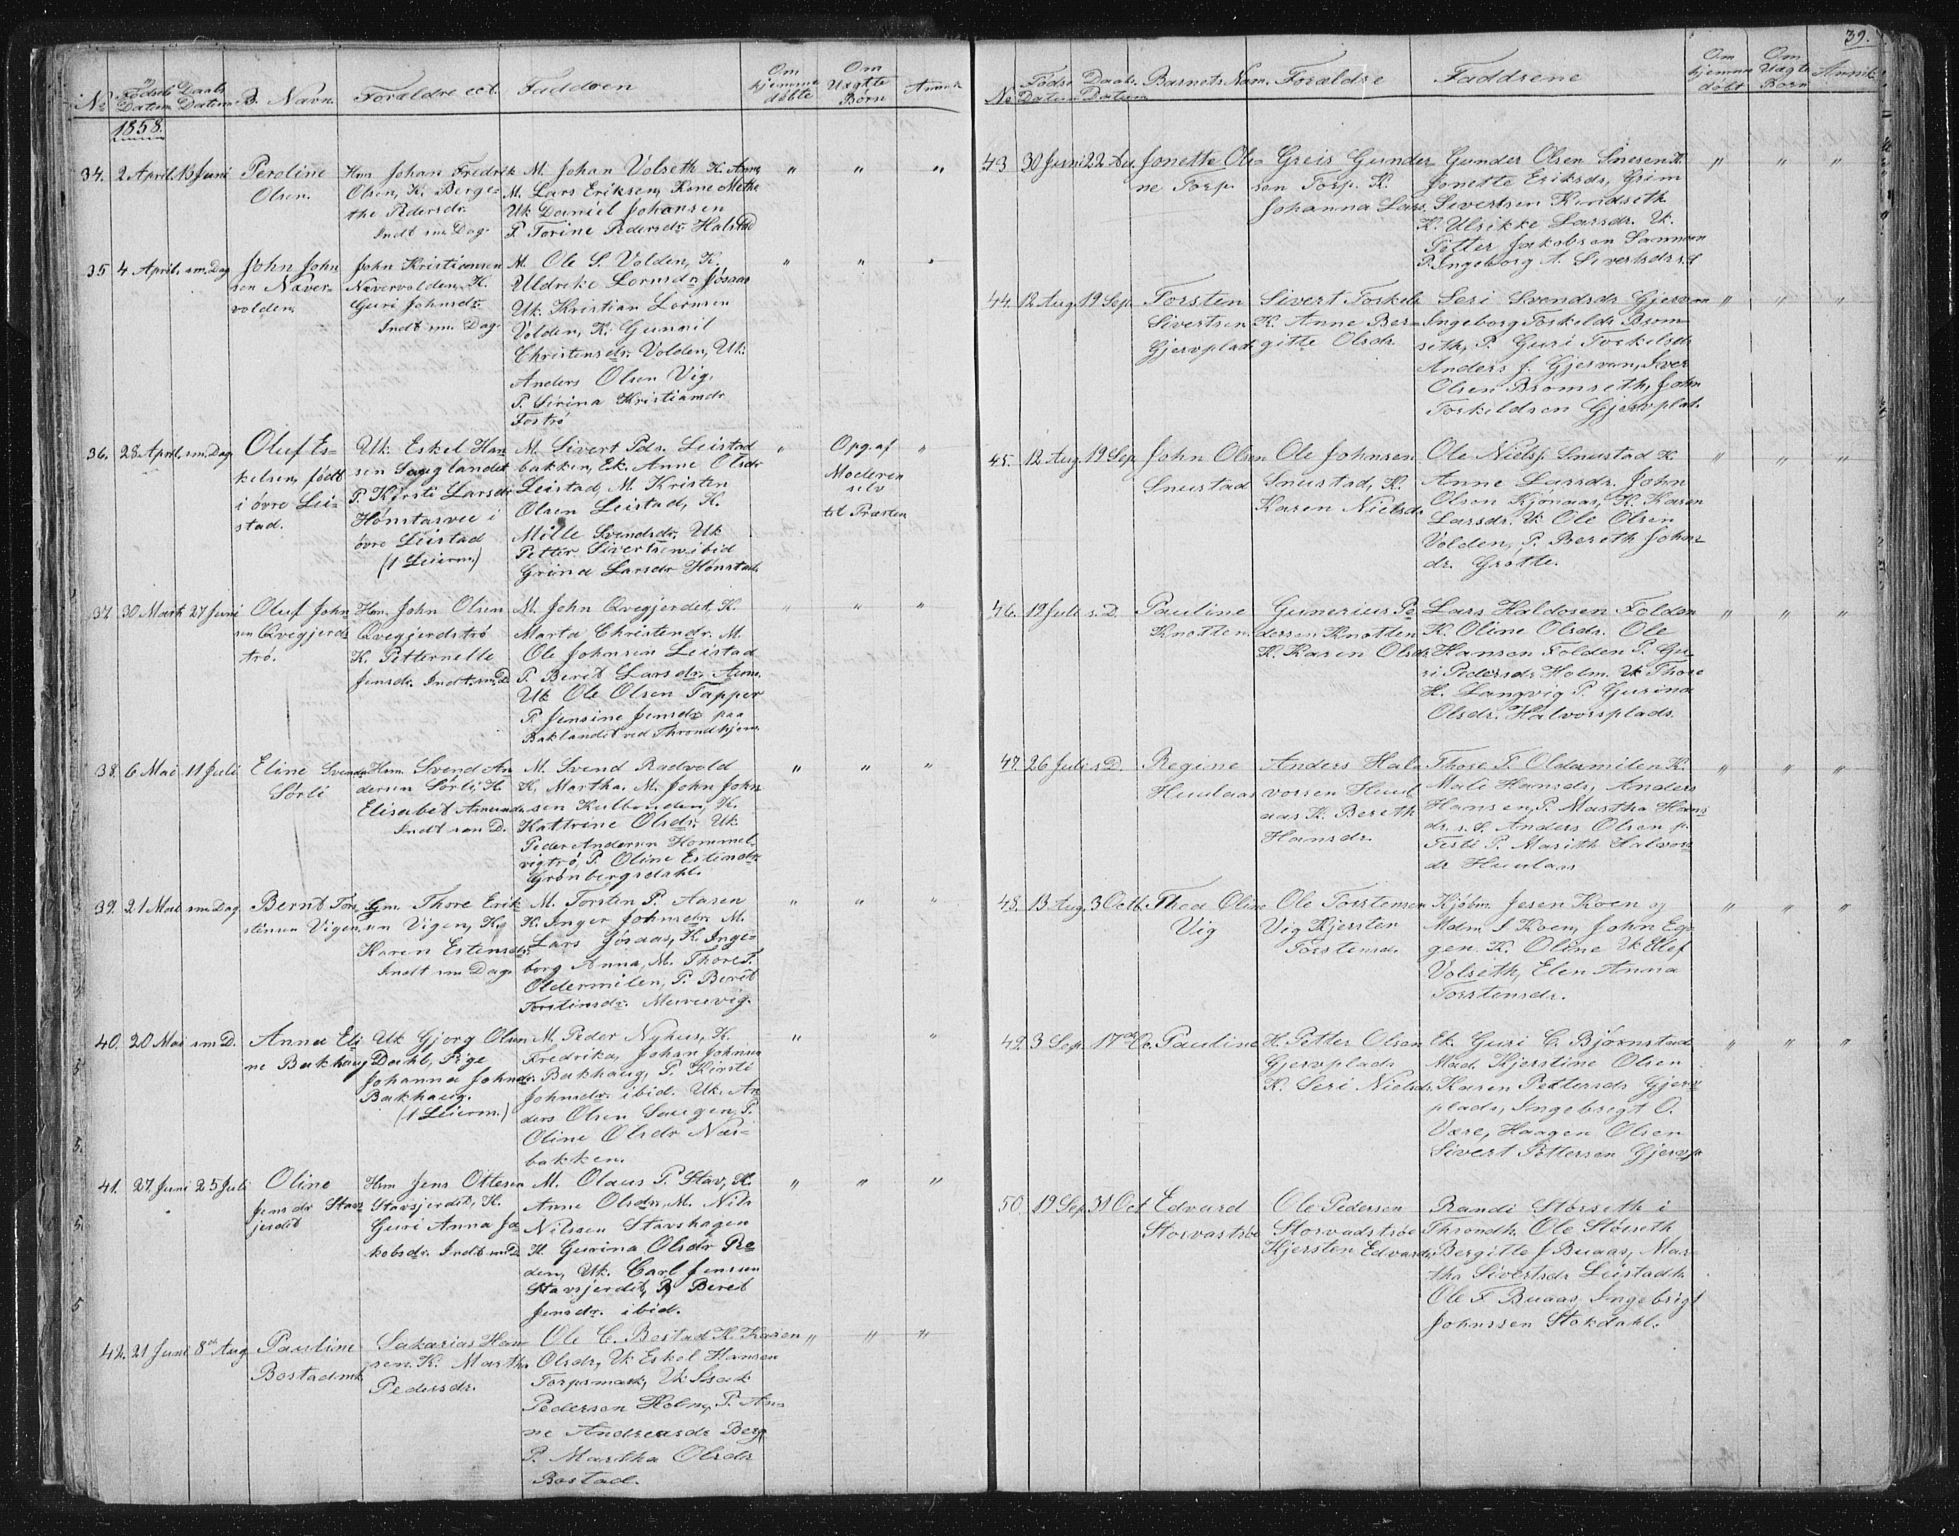 No Fødsels Datum Daabs Datum B. Navn. Foraldre ect. Faddren Om hjemme døbte Om Uægte Børn Anmk
1858.
34. 2 April. 13 Juni Perdine Olsen.
Hm Johan Fredrik
Olsen, K. Berge-
the Pedersdr.
Indt sm. Dag.
M. Johan Volseth K. Anne
M. Lars Eriksen, Kone Methe
Uk Daniel Johansen
P. Torine Pedersdr. Halstad
" " "
35 4 April. sm. Dag John John
sen Næver-
volden
John Kristiansen
Nævervolden K.
Guri Johnsdr.
Indt sm. Dag.
M. Ole S. Volden, K.
Uldrike Lornsdr Jøsaas
Uk. Kristian Lornsen
Volden, K. Gunnil
Christensdr. Volden, Uk.
Anders Olsen Vig.
P. Sirina Kristiansdr
Fostrø
" " "
36. 28 April. sm. Dag Oluf Es-
kelsen, født
i øvre Lei-
stad.
Uk. Eskel Han
sen Sauglandet
P. Kjersti Larsdr
Hønstasvee i
øvre Leistad
(1 Leierm.)
M. Sivert Pdr. Leistad
bakken, Ek. Anne Olsdr
Leistad, M. Kristen
Olsen Leistad, K.
Mille Svendsdr. Uk
Petter Sivertsen ibid
Grina Larsdr Hønstad.
" Opg. af
Moderen
selv
til Præsten "
37 30 Marts 27 Juni Oluf John
sen Qvegjerds
trø.
Hm. John Olsen
Qvegjerdstrø
K. Petternelle
Jensdr. Indt. sm. D
M. John Qvegjerdet, K.
Marta Christendr. M.
Ole Johnsen Leistad
P. Berit Larsdr. Aune.
Uk Ole Olsen Tapper
P. Jensine Jensdr paa
Baklandet ved Throndhjem.
" " "
38. 6 Mai 11 Juli Eline Svends
Sørli
Hm. Svend An
dersen Sørli, K.
Elisabet Amunds
Indt sm D.
M. Svend Radvold
K. Martha. M. John John
sen Kulbanden, K.
Kattrine Olsdr. Uk
Peder Andersen Hommel-
vigtrø, P. Oline Estensdr
Grønbergsdahl.
" " "
39. 21 Mai sm Dag. Bernt Tors-
stensen Vigen.
Hm. Thore Erik
sen Vigen, K.
Karen Estensdr.
Indt sm Dag.
M. Torsten P. Aasen
K. Inger Johnsdr. M.
Lars Jøsaas, K. Inge-
borg Anna, M. Thore T.
Oldermelen, P. Berit
Torstensdr. Moreuvig.
" " "
40. 20 Mai sm D. Anna Eli
ne Bakhaug
Uk Gjørg Olsen
Dahl, Pige
Johanna Johnsdr.
Bakhaug.
(1 Leierm.)
M. Peder Nyhus, K.
Fredrika, Johan Johnsen
Bakhaug, P. Kirsti
Johnsdr. ibid. Uk. An
ders Olsen Saugen, P.
Oline Olsdr Nær-
bakken.
" "
41. 27 Juni 25 Juli Oline
Jensdr Stavs
jerdet
Hm Jens Ottesen
Stavsjerdet, K.
Guri Anna Ja
kobsdr. Indt sm D
M. Olaus P. Stav, K.
Anne Olsdr, M. Nils
Nilsen Stavshagen
K. Gurina Olsdr Re-
den, Uk. Carl Jensen
Stavsjerdet, P. Beret
Jensdr. ibid.
" " "
42. 21 Juni 8de Aug Pauline
Bostadmk
Sakarias Han-
sen. K. Marth
Pedersdr.
Ole C. Bostad K. Karen
Olsdr, Uk Eskel Hansen
Torpsmark, Uk Isak
Pedersen Holm, P. An
ne Andreasdr Berg
P. Martha Olsdr
Bostad.
" " "
39.
No Føds. Datum Daabs Datum Barnets Nam. Forældre Faddrene Om hjemme døbt Om Uægte Børn Anmk
43 30 Juni 22 Aug. Jonette Oli-
ne Torp.
Greis Gunder
sen Torp. K.
Johanna Lars.
Gunder Olsen Snesen K.
Jonette Eriksdr, Grim
Sivertsen Kindseth
K. Ulrikke Larsdr. Uk.
Petter Jakobsen Sannan
P. Ingeborg A. Sivertsdr s.s
" " "
44. 12 Aug. 19 Sep. Torsten
Sivertsen
Gjersplad
Sivert Toskels
K. Anne Ber-
gitte Olsdr.
Seri Svendsdr Gjersvan
Ingeborg Toskilds Brøm-
seth, P. Guri Torkelsdr
Anders J. Gjersvan, Iver
Olsen Brømseth, John
Toskildsen Gjersplat.
" " "
45. 12 Aug. 19 Sep John Olsen
Snustad
Ole Johnsen
Snustad, K.
Karen Nielsdr
Ole Nielsj Snustad K
Anne Larsdr. John
Olsen Kjønaas, K. Karen
Larsdr. Uk Ole Olsen
Volden, P. Bereth Johns-
dr. Grøtte.
" " "
46. 19 Juli s. D. Pauline
Knotten.
Gunerius Pe
dersen Knotten
K. Karen Olsdr.
Lars Haldosen Folden
K. Oline Olsdr. Ole
Hansen Folden P. Gu-
ri Pedersdr Holm. Uk Thore
H. Langvig P. Gurina
Olsdr. Halvorsplads.
" " "
47. 26 Juli s. D. Regine
Huulaas
Anders Hal-
vorsen Huul
aas K. Bereth
Hansdr.
Thore T. Oldermelen K.
Mali Hansdr, Anders
Hansen, P. Martha Hans
dr. s. S. Anders Olsen p.
Testi P. Marith Halvors-
dr Huulaas
" " "
48. 13 Aug. 3 Octb. Thea Oline
Vig
Ole Torstensen
Vig Kjersten
Torstensd.
Kjøbm. Jesen Koen og
Mdm. I Koen, John Eg-
gen. K. Oline Uk Elef
Volseth, Elen Anna
Torstensdr.
" " "
49. 3 Sep. 17de Oc. Pauline
K. Petter Olsen
Gjersplads
K. Seri Nielsdr.
Ek. Guri C. Bjørnstad
Mad. Kjerstine Olsen
Karen Pettersds Gjers-
plads, Ingebrigt O.
Være, Haagen Olsen
Sivert Pettersen Gjersp
" " "
50. 19 Sep 31 Oct Edvard
Storvastrøe
Ole Pedersen
Storvadstrøe
Kjersten Edvards.
Randi Størseth i
Throndh. Ole Størseth
Bergitte J Buaas, Mar-
tha Sivertsdr Leistadh.
Ole F Buaas, Ingebrigt
Johnssen Stokdahl.